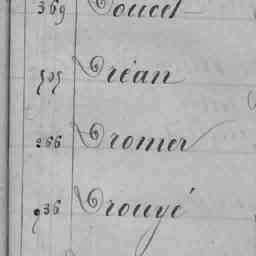 369 Doucet
505 Dréan
266 Dromer
936 Drouyé